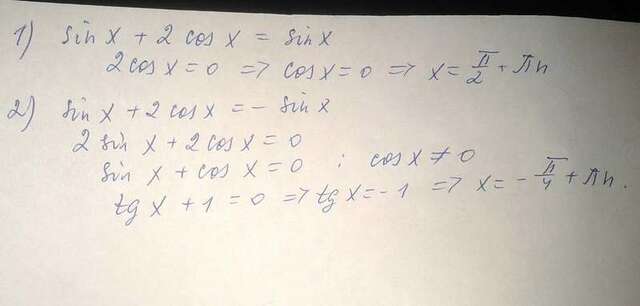 1) sin x + 2 cos x = sin x
2 cos x = 0 => cos x = 0 => x = π/2 + πn
2) sin x + 2 cos x = - sin x
2 sin x + 2 cos x = 0
sin x + cos x = 0 ; cos x ≠ 0
tg x + 1 = 0 => tg x = -1 => x = - π/4 + πn.